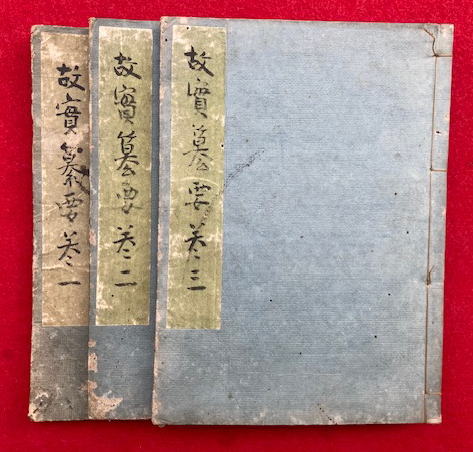 故實纂要巻一
故實纂要巻二
故實纂要巻三